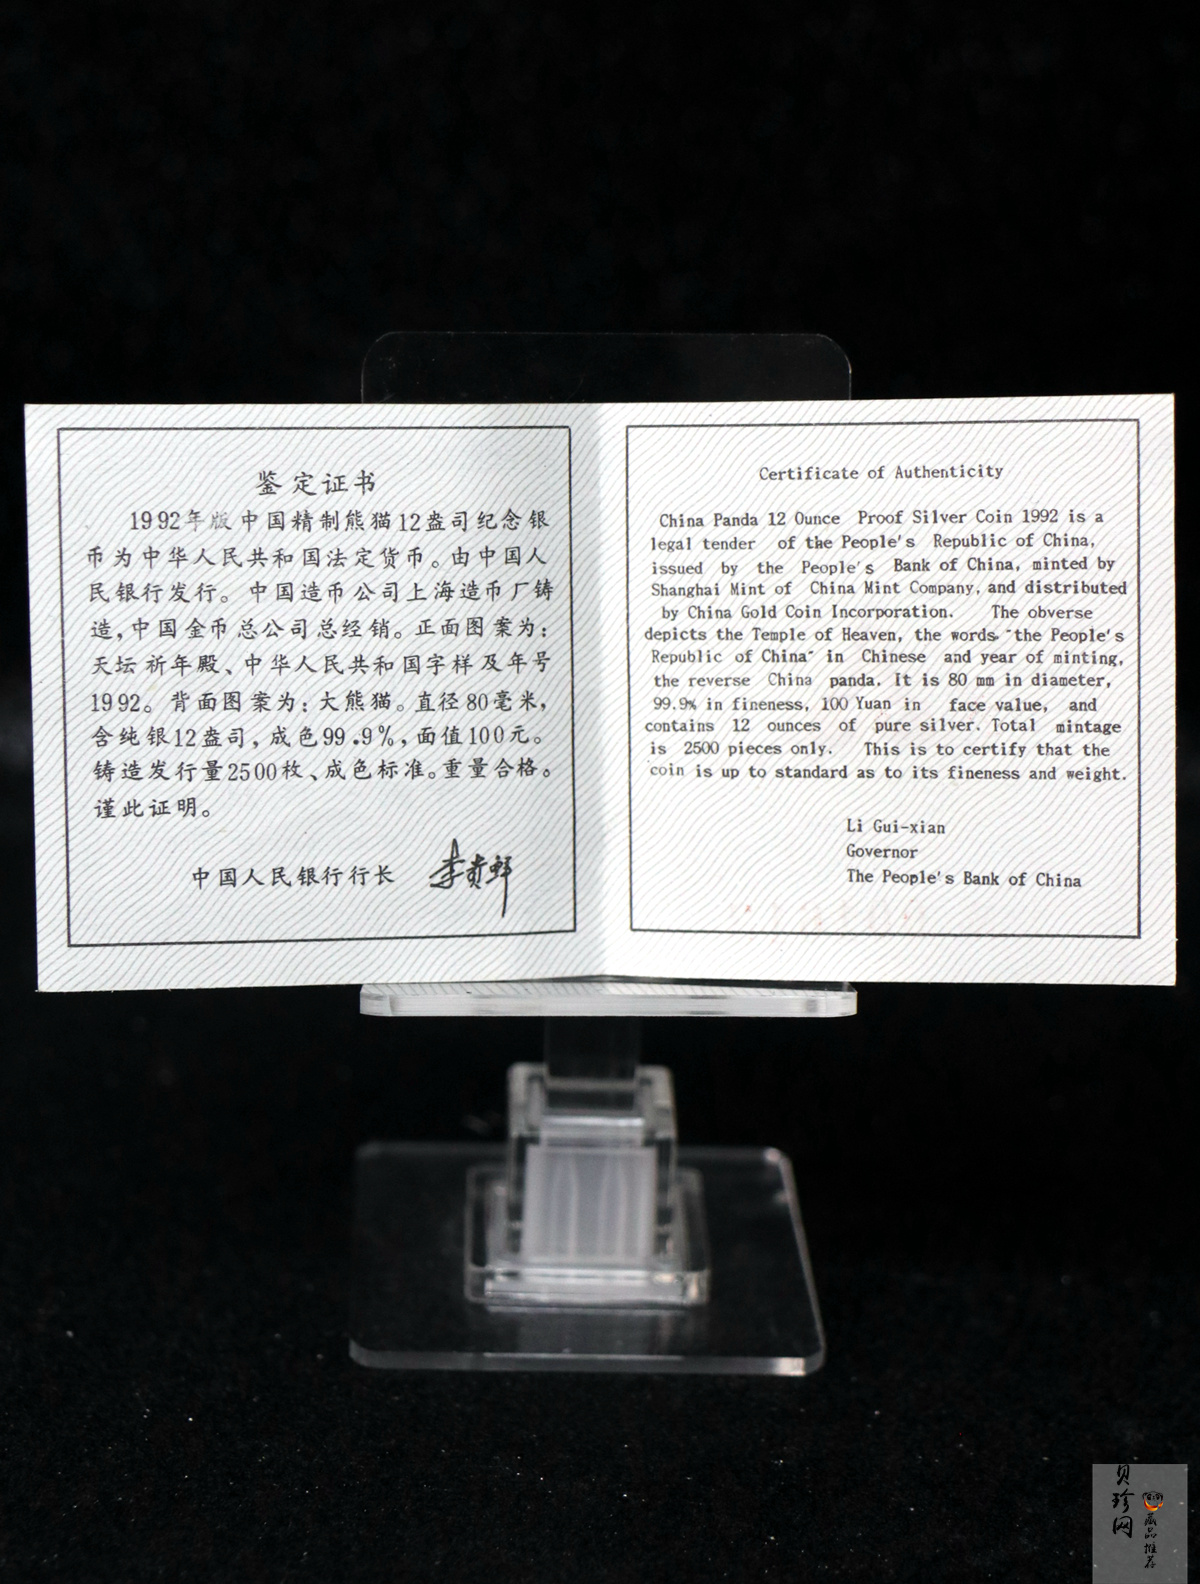 鉴定证书
1992年版中国精制熊猫12盎司纪念银
币为中华人民共和国法定货币。由中国人
民银行发行。中国造币公司上海造币厂铸
造,中国金币总公司总经销。正面图案为:
天坛祈年殿、中华人民共和国字样及年号
1992。背面图案为:大熊猫。直径80毫米,
含纯银12盎司,成色99.9%,面值100元。
铸造发行量2500枚、成色标准。重量合格。
谨此证明。
中国人民银行行长 李贵鲜
Certificate of Authenticity
China Panda 12 Ounce Proof Silver Coin 1992 is a
legal tender of the People's Republic of China,
issued by the People's Bank of China, minted by
Shanghai Mint of China Mint Company, and distributed
by China Gold Coin Incorporation. The obverse
depicts the Temple of Heaven, the words "the People's
Republic of China" in Chinese and year of minting,
the reverse China panda. It is 80 mm in diameter,
99.9% in fineness, 100 Yuan in face value, and
contains 12 ounces of pure silver. Total mintage
is 2500 pieces only. This is to certify that the
coin is up to standard as to its fineness and weight.
Li Gui-xian
Governor
The People's Bank of China
贝珍网
藏品推荐